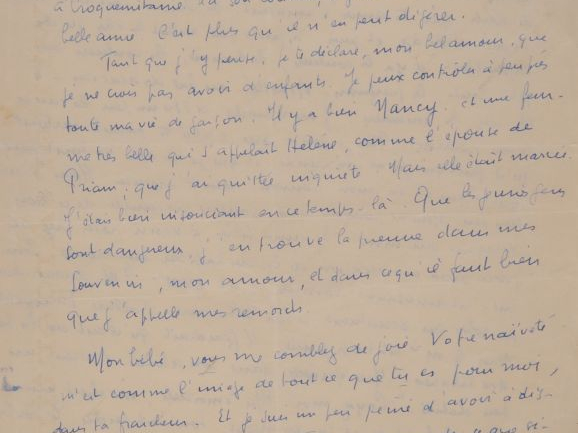 à Croquemitaine
belle amie. C'est plus qu'il n'en peut digérer.
Tant que j'y pense, je te déclare, mon bel amour, que
je ne crois pas avoir d'enfants. Je peux contrôler à peu près
toute ma vie de garçon. Il y a bien Nancy. et une fem-
me très belle qui s'appelait Hélène, comme l'épouse de
Priam, que j'ai quittée inquiète. Mais elle était mariée.
J'étais bien insouciant en ce temps-là. Que les jeunes gens
sont dangereux, j'en trouve la preuve dans mes
souvenirs, mon amour, et dans ce qu'il faut bien
que j'appelle mes remords.
Mon bébé, vous me comblez de joie. Votre naïveté
m'est comme l'image de tout ce que tu es pour moi,
dans ta fraîcheur. Et je suis un peu peiné d'avoir à dis-